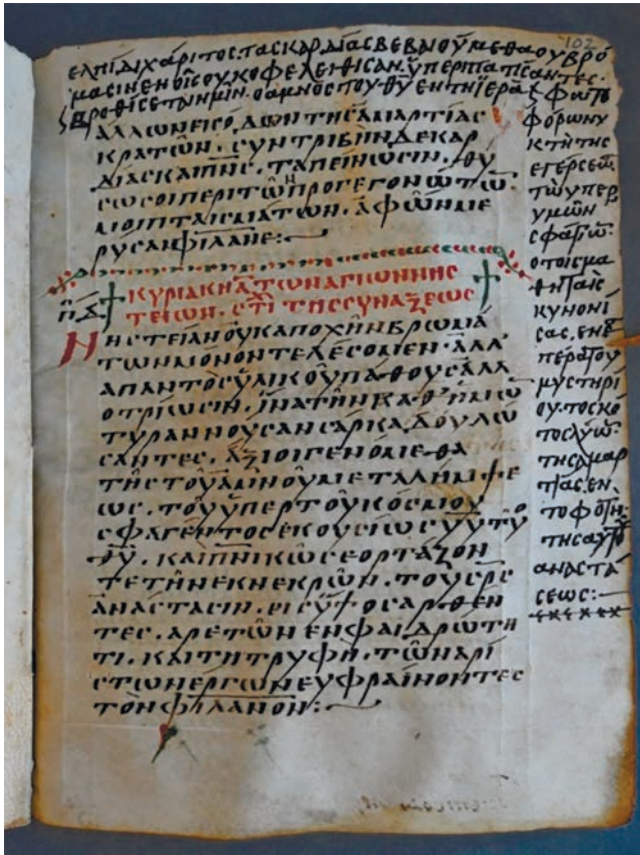 102
ελπίδι χάριτος. τας καρδίας βεβαιούμεθα ου βρό
μασιν εν οίς ουκ οφελείθισαν. ϋπερπατίσαντες.
βροθίσεται ημίν. ο αμνος του θυ εν τη ϊερα
αλλων εισόδων της αμαρτίας
κρατών. συντριβην δε καρ
δίας και πνς. ταπείνωσιν. θυ
σω σοι περι τών προγεγονώτω
μοι πταισμάτων. αφών με
ρυσαι φιλανε:
πδ
κυριακη α των αγιων νης
τειων. στι της συναξεως
Νηστείαν ουκ αποχην βρωμά
των μονον τελέσομεν. αλλ'
απαντος ϋλικού πάθους αλλ
οτρίωσιν. ίνα την καθ' ημώ
τυραννουσαν σάρκα, δουλώ
σαντες. άξιοι γενόμεθα
της του αμνού μεταλήμψε
ως. του ϋπερ τού κόσμου
σφαγέντος εκουσίως υυ του
θυ. και πνικώς εορτάζον
τε την εκ νεκρών. του σρς
ανάστασιν. εις ύψος αρθεν
τες. αρετών εν φαιδρωτη
τι. και τη τρυφη. των αρί
στων έργων ευφραίνοντες
τον φιλανον:
φωτο
φόρω νυ
κτή της
εγέρσεω
τω υπερ
υμών
σφαγιω
ο τοις μα
θηταίς
κυνονί
σας. εν
περα του
μυστηρί
ου. το σκό
τος λύω
της αμαρ
τίας. εν
το φοτη
της αυτου
αναστά
σεως: